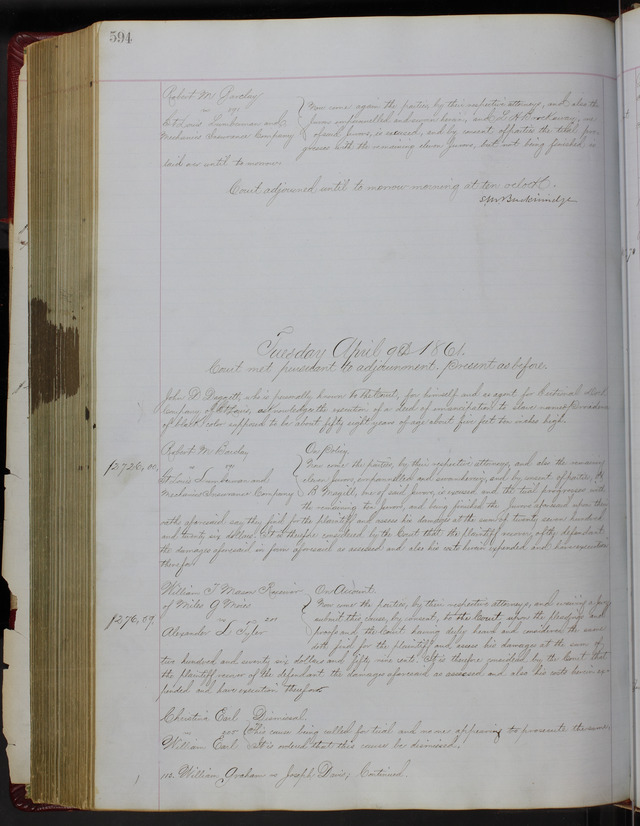 594
Robert M. Barclay
vs
St Louis Lumberman and
Mechanics Insurance Company
Now come again the parties by their respective attorneys, and also the
Jurors empannelled and sworn herein, and one
of said Jurors, is excused, and by consent of parties the trial pro-
gresses with the remaining eleven Jurors, but not being finished is
laid over until to morrow
Court adjourned until to morrow morning at ten oclock.
S M Breckinridge
Tuesday April 9th 1861.
Court met pursuant to adjournment. Present as before.
John D. Daggett, who is personally known to the Court, for himself and as agent for Sectional Dock
Company of St Louis, acknowledges the execution of a deed of emancipation to slave named
of black color supposed to be about fifty eight years of age about five feet ten inches high.
$2726,00,
Robert M Barclay
vs
St Louis Lumberman and
Mechanics Insurance Company
On Policy.
Now come the parties, by their respective attorneys, and also the remaining
eleven Jurors, empannelled and sworn and by consent of parties
B Magill, one of said Jurors, is excused and the trial progresses with
the remaining ten Jurors, and being finished the Jurors aforesaid upon their
oaths aforesaid say they find for the plaintiff and assess his damages at the sum of twenty seven hundred
and twenty six dollars. It is therefore considered by the Court that the plaintiff recover of the defendant
the damages aforesaid in form aforesaid as assessed and also his costs herein expended and have execution
therefor.
$276,59
William T. Mason Receiver
of Miles G Moies
vs
Alexander L Tyler
On Account.
Now come the parties, by their respective attorneys, and waiving a Jury
submit this cause, by consent, to the Court upon the pleadings and
proofs and the Court having duly heard and considered the same
doth find for the plaintiff and assess his damages at the sum of
two hundred and seventy six dollars and fifty nine cents. It is therefore considered by the Court that
the plaintiff recover of the defendant the damages aforesaid as assessed and also his costs herein ex-
pended and have execution therefor.
Christina Earl
vs
William Earl
Dismissal.
This cause being called for trial and no one appearing to prosecute the same
It is ordered that this cause be dismissed.
112. William Graham vs Joseph Davis; Continued.